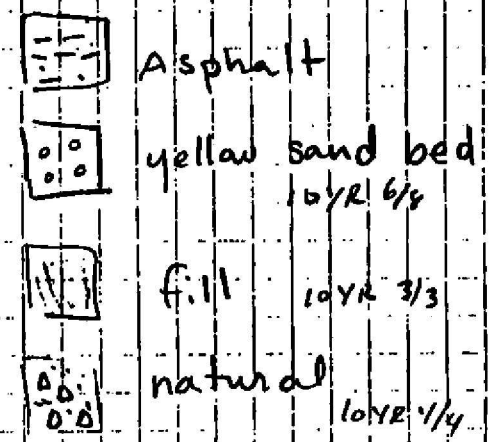 Asphalt
yellow sand bed
10YR 6/8
fill 10YR 3/3
natural
10YR 4/4